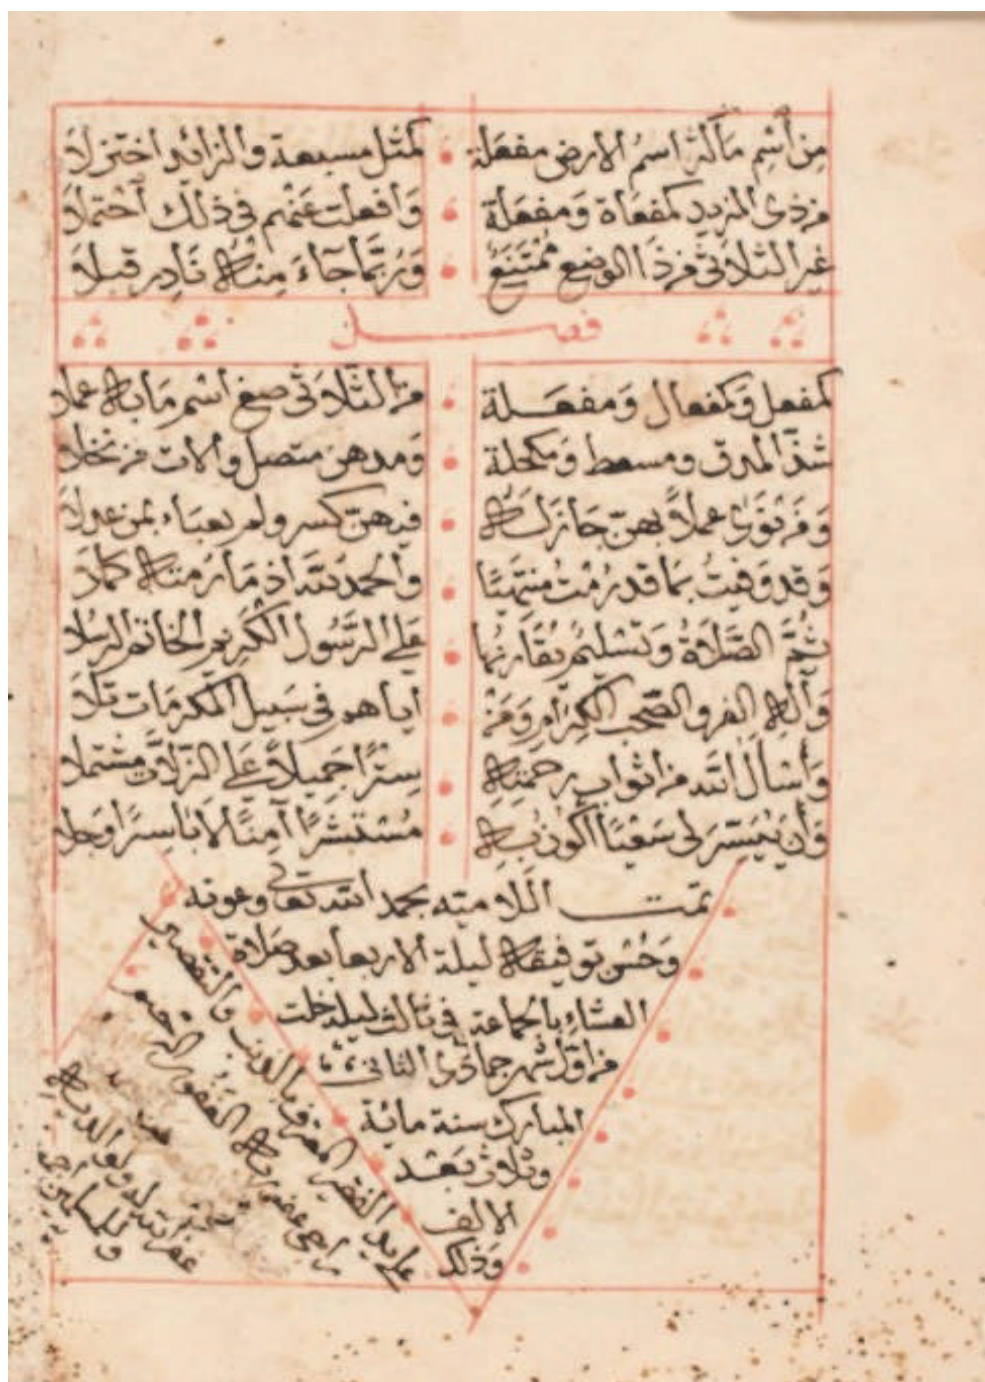 مِن اسْمِ مَا كَثُرَ اسمُ الارض مفعَلة كمثل مسبعة والزائد اختزلا
من ذى المزيد كمفعاة وَمفعَلة وَافعلت عَنهُم في ذلك احْتملا
غير الثلاثى من ذا الوضع مُمْتَنِعُ وَرُبَّما جآءَ مِنهُ نَادِر قبلا
فصل
كمفعل وَكمفعال وَمفعَلة من الثلاثى صغ اسْم مَا به عملا
شذّ المدق ومسعط وَمكحلة وَمدهن منصل والات من نخلا
وَمَن نَوَى عملاً بهنّ جَازَ لَهُ فيهنّ كسر ولم يعبَاء بمن عذلا
وَقد وَفيتُ بمَا قد رُمْتُ منتهيًا والحمدُ لله اذ مَا رُمته كملا
ثُمَّ الصَّلاَةُ وَتَسْليم يُقَارِنُهَا عَلى الرَّسُول الكَرِيم الخاتم الرسُلا
وَآلهِ الغر والصَّحب الكِرَامِ وَمَنْ اياهم في سَبيل المكرمَات تَلاَ
وَأسْأل الله من اثواب رحمتِهِ سِترًا جَميلاً عَلى الزلاَّت مشتملا
وَأن يُيَسِّرَ لى سَعْيًا أكُون بِهِ مُسْتَبْشَرًا آمِنًا لاَ بَاسِرًا وَجلا
تمت اللامية بحمد الله تعالى وعونه
وَحُسْن توفيقه ليلة الاربعا بعد صَلاة
العشاءِ بالجماعة في ثالث ليلة خلت
من اوَّل شهر جمادَى الثانى
المبارك سنة مائة
وثلاث بَعْد
الالف
وَذلك
على يد الفقير المعترف بالذنب والتقصير
راجى عفو ربه الغفور الرحيم
غفر الله له ولوالديه
وللمسلمين اجمعين